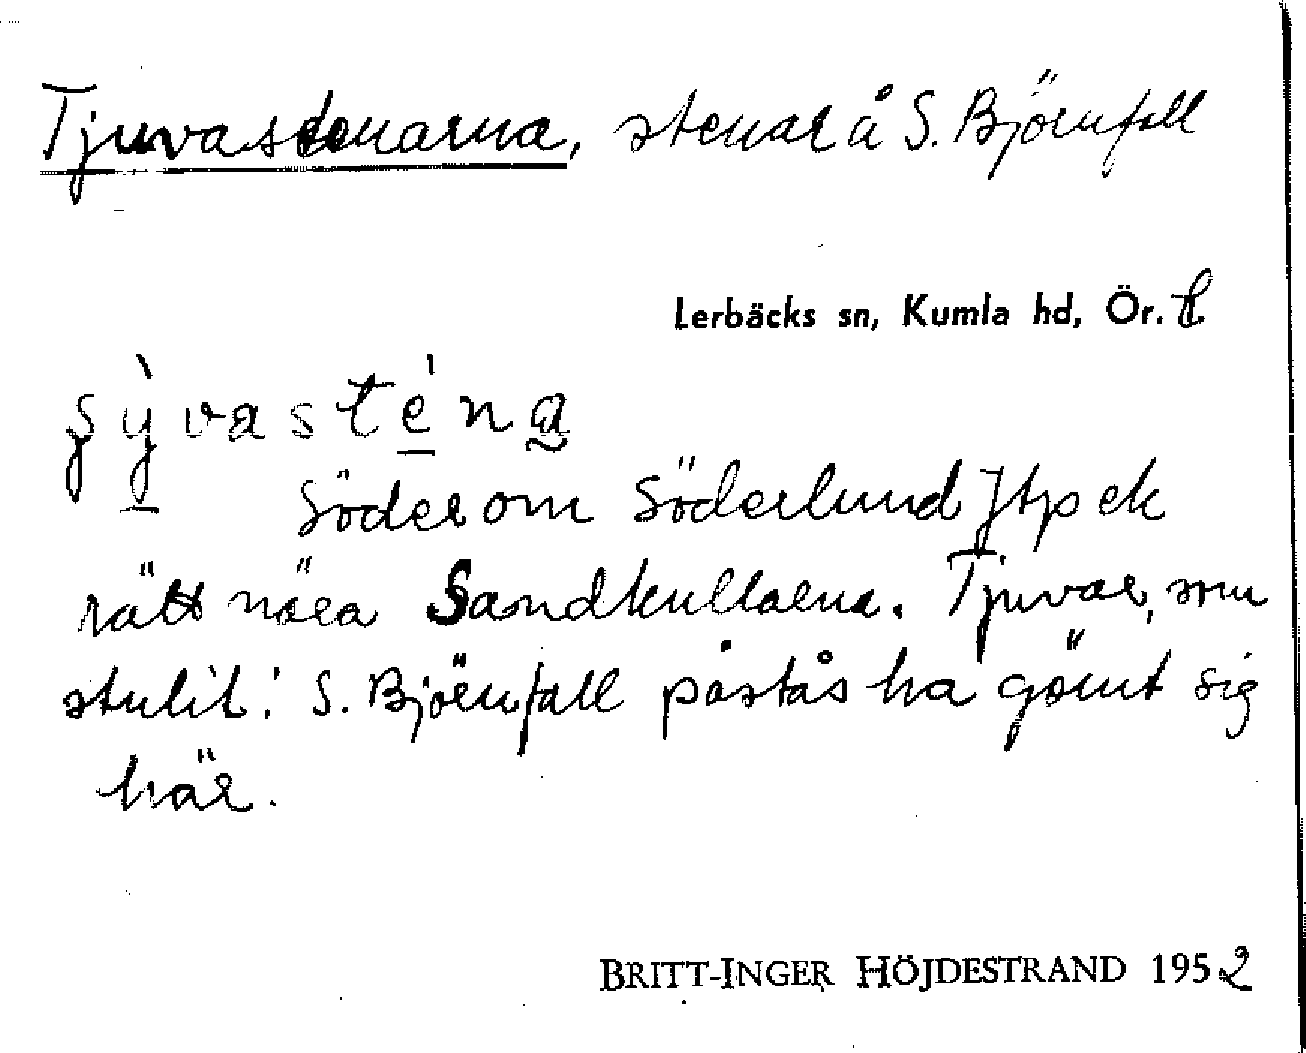 Tjuvastenarna, stenar å S. Björnfall
Lerbäcks sn, Kumla hd, Ör. l
şỳvasténa
Söder om Söderlund Jtp ek
rätt nära Sandkullarna. Tjuvar, som
stulit i S. Björnfall påstås ha gömt sig
här.
BRITT-INGER HÖJDESTRAND 1952